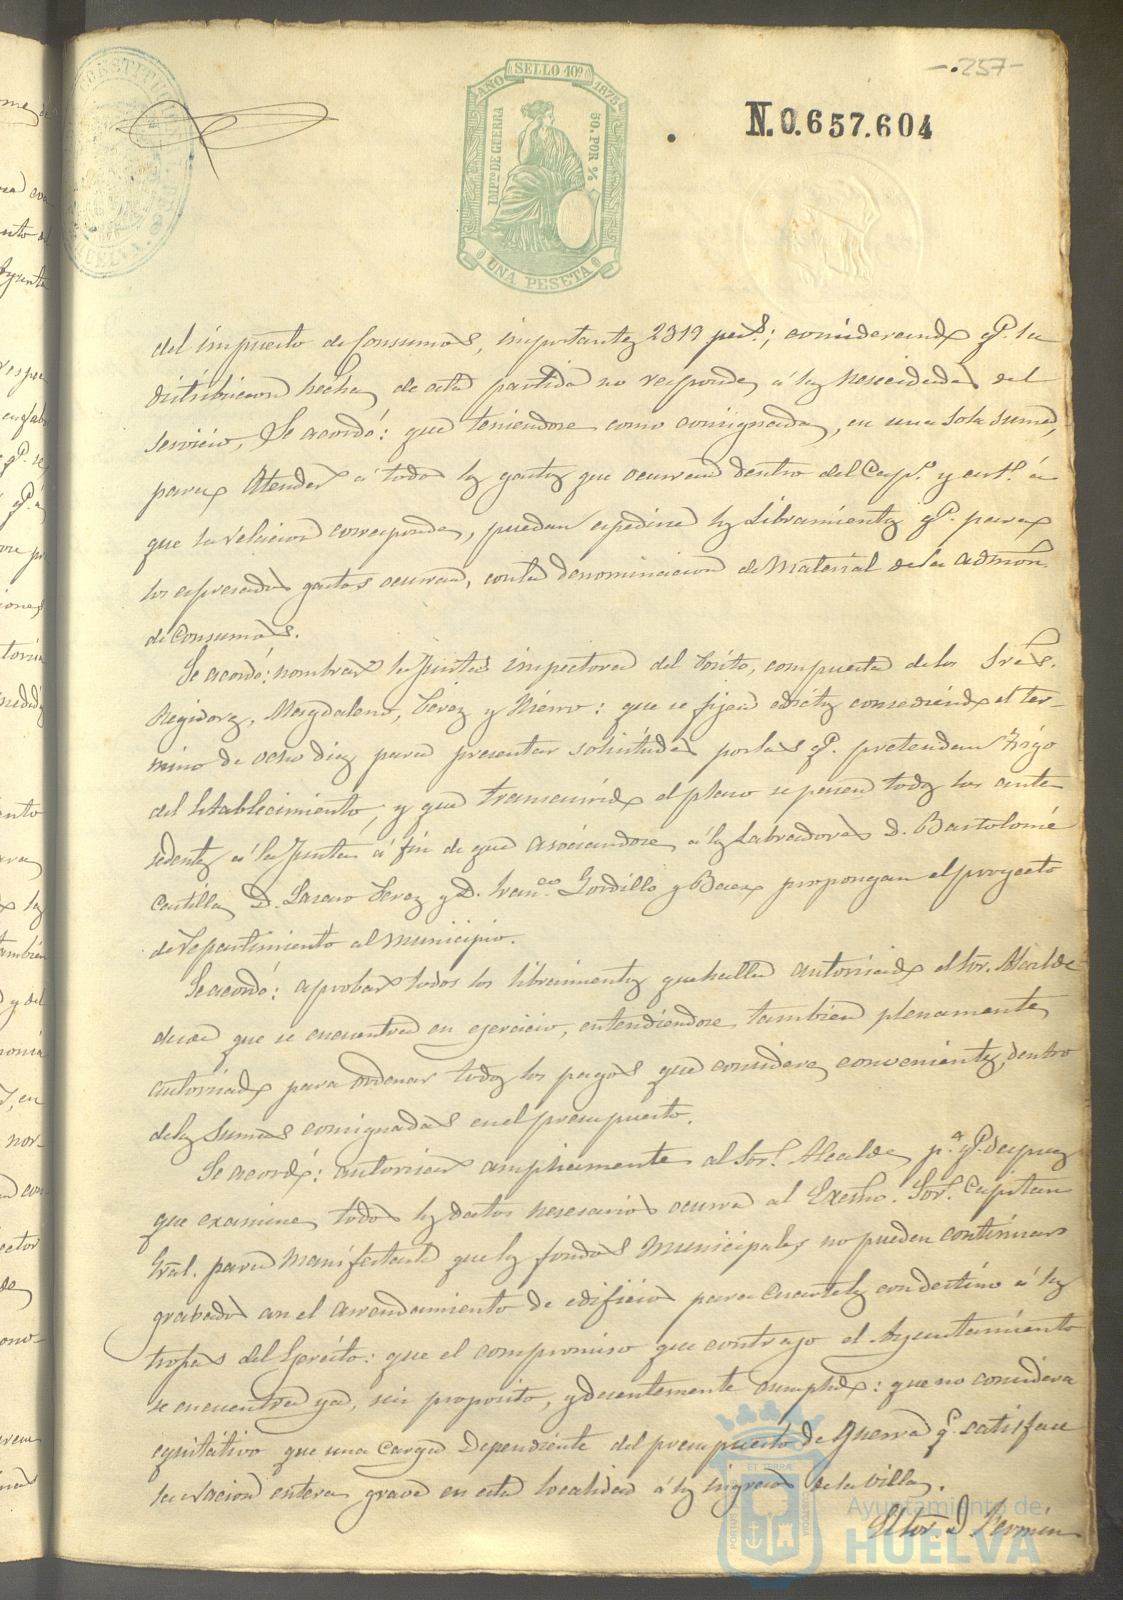 -.257-
CONSTITUCION
HUELVA
AÑO SELLO 10º 1875
IMPto. DE GUERRA
50.POR %
UNA PESETA
N.0.657.604
del impuesto de Consumos, importantes 2319 pets.; considerando qe. la
distribucion hecha de esta partida no responde á las nesecidades del
servicio, Se acordó: que teniendose como consignada, en una sola suma,
para Atender á todos los gastos que ocurran dentro del Capo. y arto. á
que la relacion corresponde, puedan espedirse los Libramientos qe. para
los espresados gastos ocurran, con la denominacion de Material de la admon.
de Consumos.
Se acordó: nombrar la Junta inspectora del Pósito, compuesta de los Sres.
Regidores, Magdaleno, Perez y Nieno: que se fijen edictos consediendo el ter-
mino de ocho dias para presentar solicitudes por las qe. pretendan Trigo
del Establecimiento, y que transcurrido el plaso se pasen todos los ante
sedentes á la Junta á fin de que asociandose á los Labradores D. Bartolomé
Castilla, D. Lasaro Perez y D. Franco. Gordillo y Baez propongan el proyecto
de repartimiento al Municipio.
Se acordó: aprobar todos los libramientos que halla autorisado el Sor. Alcalde
desde que se encuentra en egercicio, entendiendose tambien plenamente
autorisado para ordenar todos los pagos que considere convenientes, dentro
de las Sumas consignadas en el presupuesto.
Se acordó: autorisar ampliamente al Sor. Alcalde pa. qe. despues
que examine todos los datos nesesarios ocurra al Exsmo. Sor. Capitan
Gral. para Manifestarle que los fondos Municipales no pueden continuar
grabados con el arrendamiento de edificios para Cuarteles con destino á las
tropas del Egercito: que el compromiso que contrajo el Ayuntamiento
se encuentra ya, sin proposito, y desentemente cumplido: que no considera
equitativo que una carga dependiente del presupuesto de Guerra qe. satisface
la nacion entera grave en esta localidad á los ingresos de la villa.
El Sor. D. Fermin
Ayuntamiento de
HUELVA